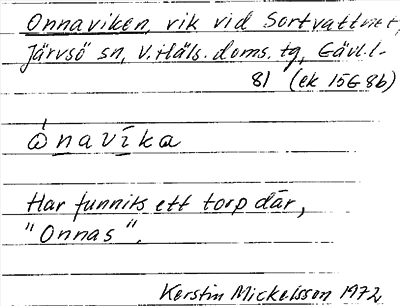 Onnaviken, vik vid Sortvattnet,
Järvsö sn, V. Häls. doms. tg, Gävl.l.
81 (ek 15G 8b)
ònavíka
Har funnits ett torp där,
"Onnas".
Kerstin Mickelsson 1972